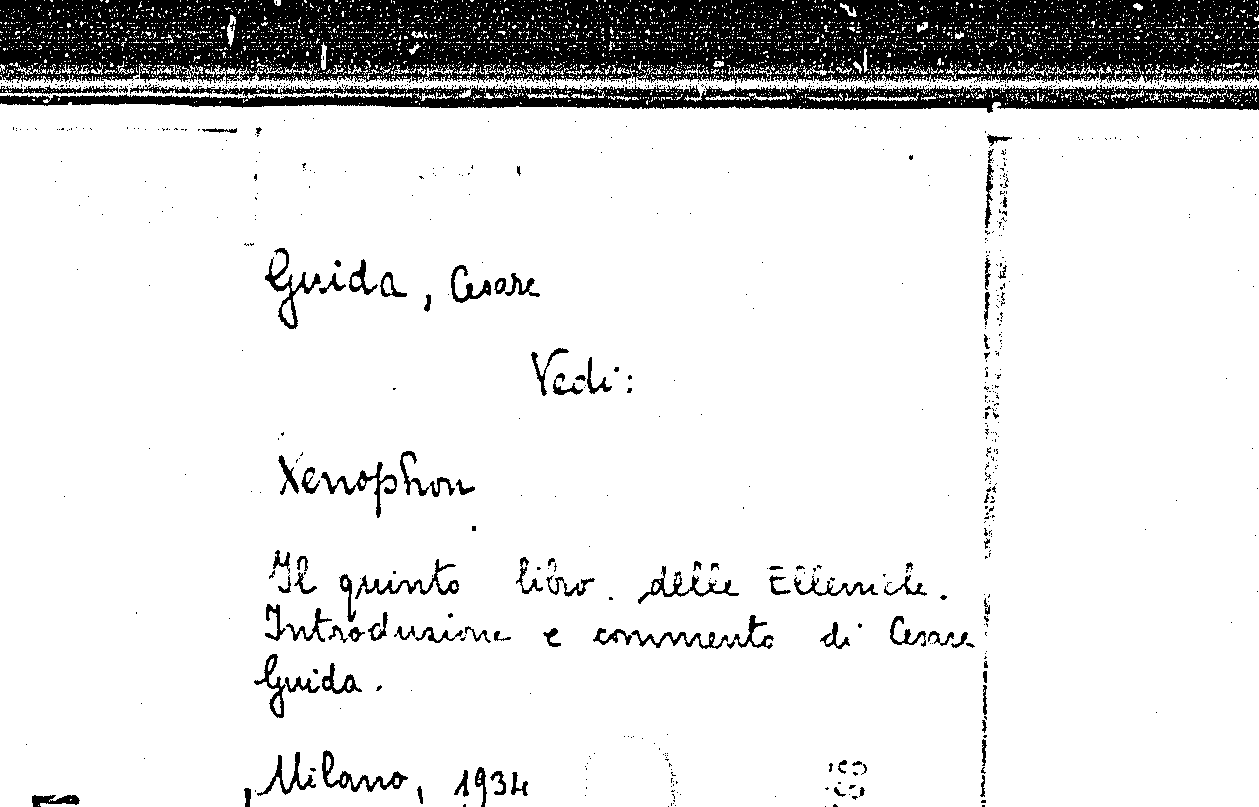 Guida, Cesare
Vedi:
Xenophon
Il quinto libro delle Elleniche.
Introduzione e commento di Cesare
Guida.
Milano, 1934